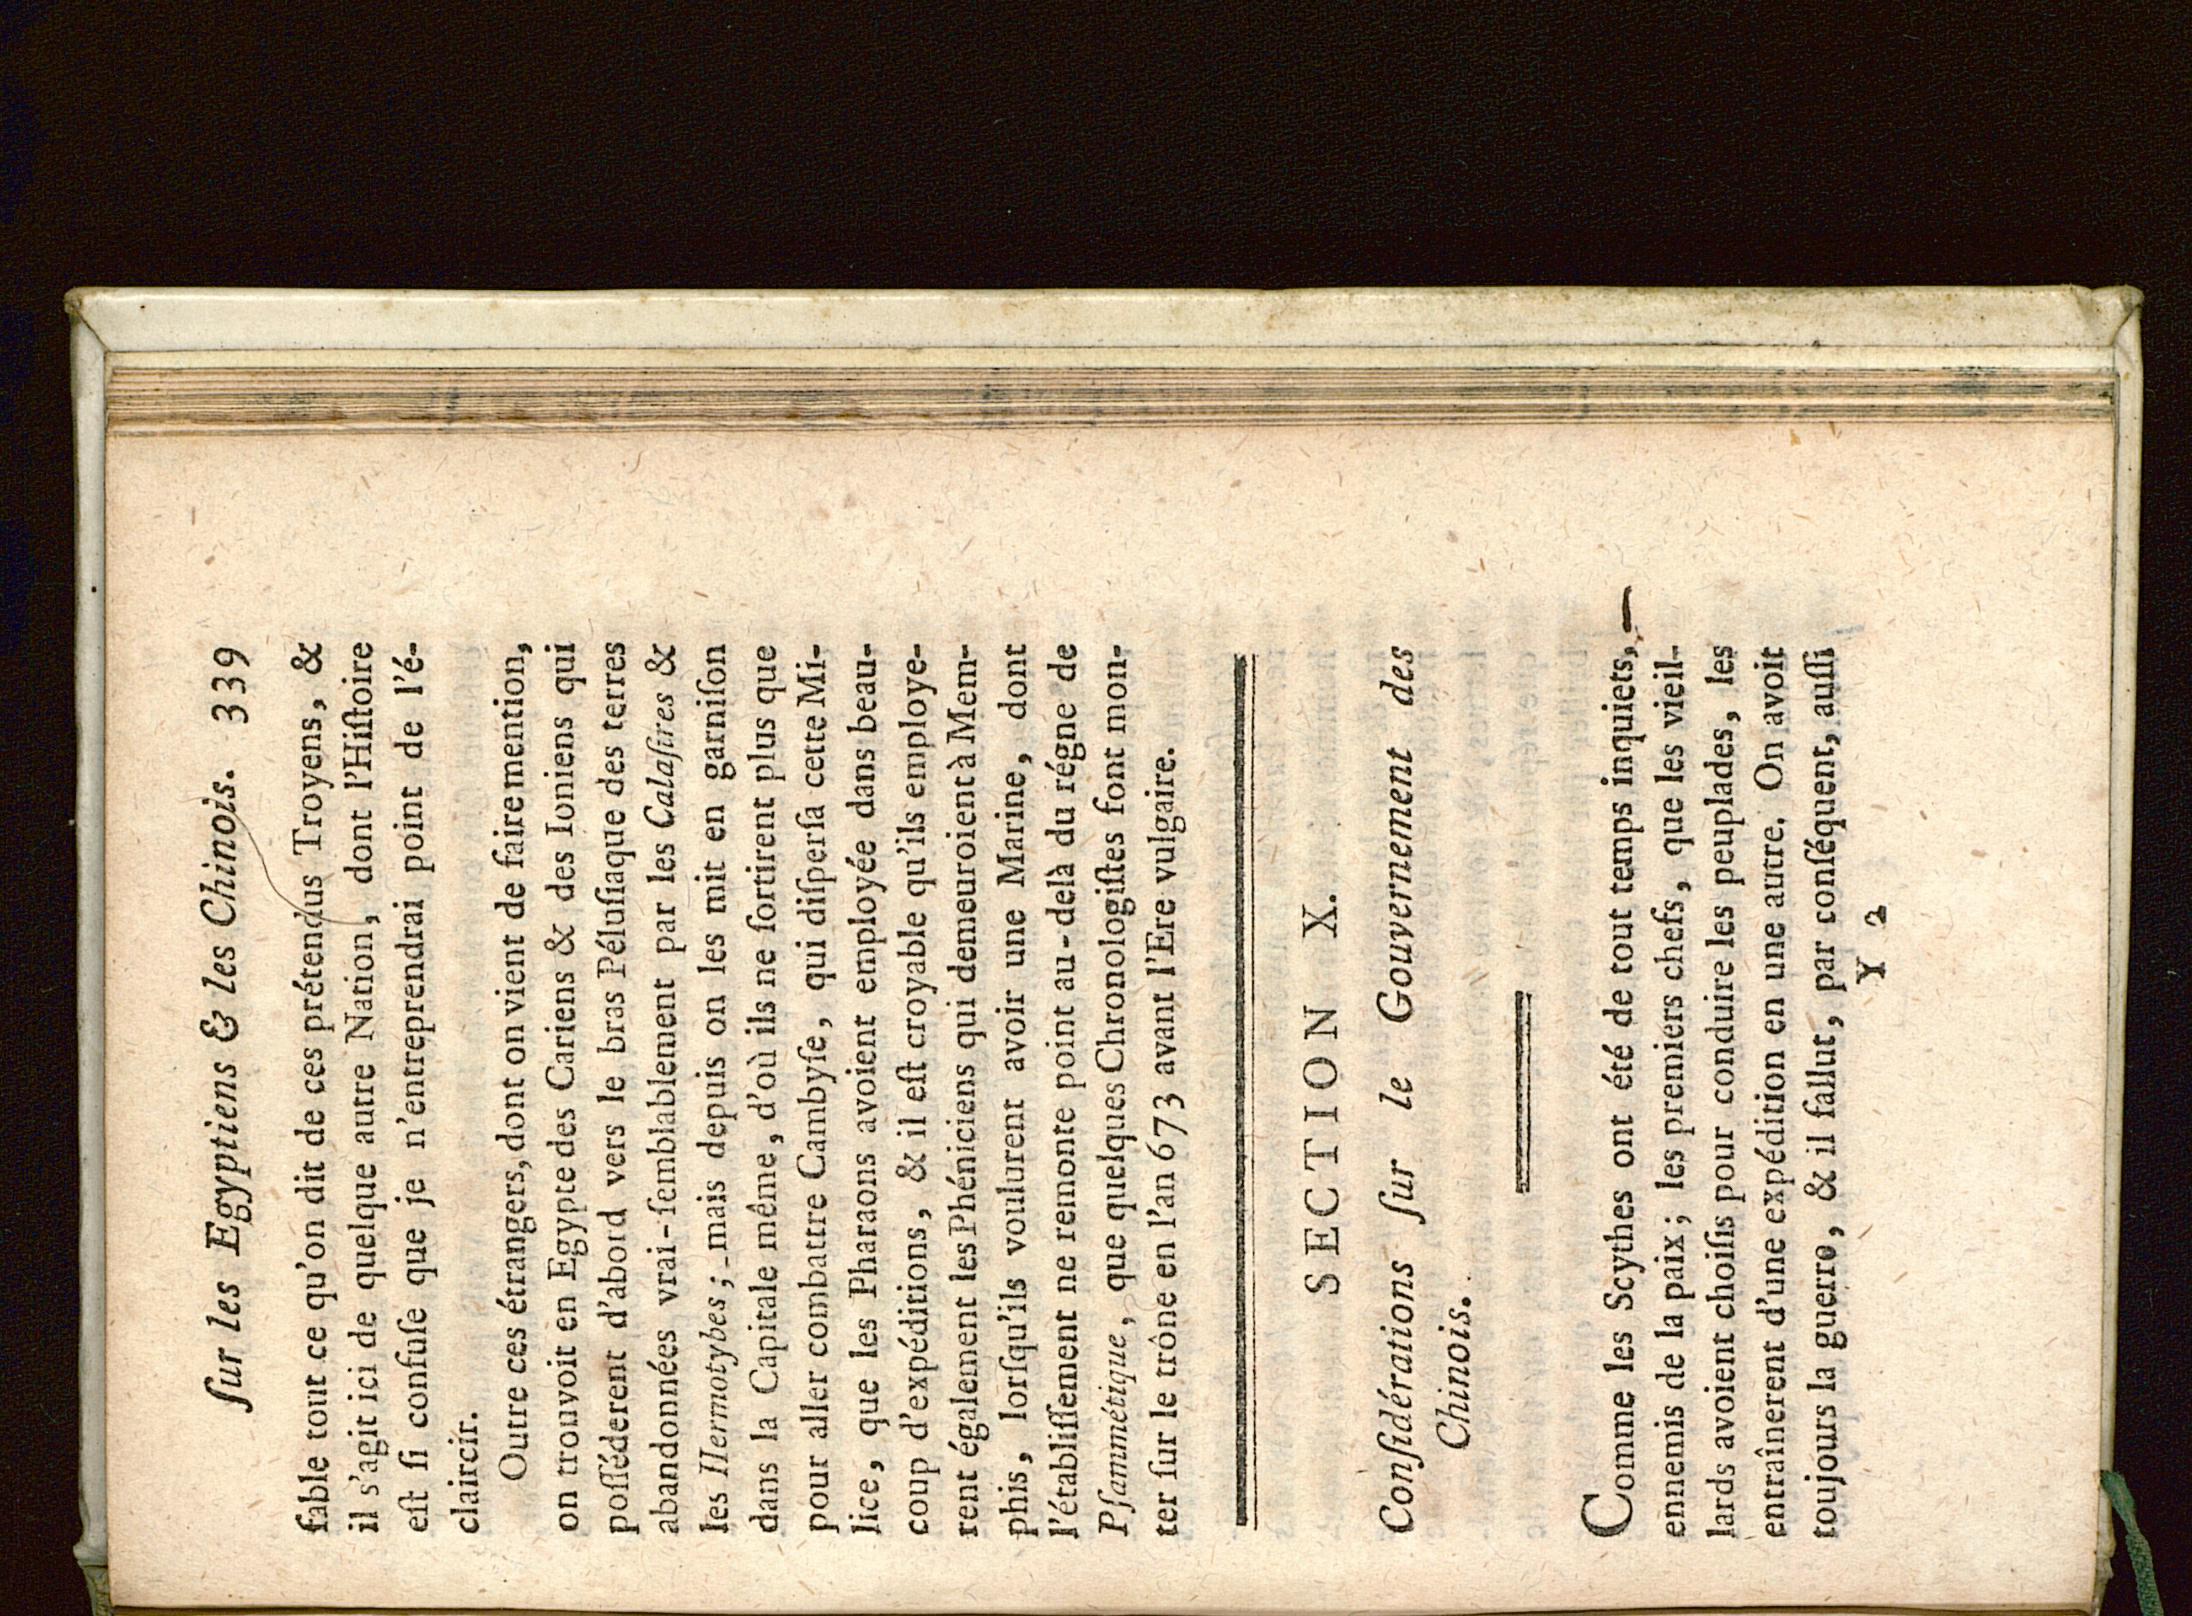 ſur les Egyptiens & les Chinois. 339
fable tout ce qu'on dit de ces prétendus Troyens, &
il s'agit ici de quelque autre Nation, dont l'Hiſtoire
eſt ſi confuſe que je n'entreprendrai point de l'é-
claircir.
Outre ces étrangers, dont on vient de faire mention,
on trouvoit en Egypte des Cariens & des Ioniens qui
poſſéderent d'abord vers le bras Péluſiaque des terres
abandonnées vrai-ſemblablement par les Calaſires &
les Hermotybes; mais depuis on les mit en garniſon
dans la Capitale même, d'où ils ne ſortirent plus que
pour aller combattre Cambyſe, qui diſperſa cette Mi-
lice, que les Pharaons avoient employée dans beau-
coup d'expéditions, & il eſt croyable qu'ils employe-
rent également les Phéniciens qui demeuroient à Mem-
phis, lorſqu'ils voulurent avoir une Marine, dont
l'établiſſement ne remonte point au-delà du régne de
Pſammétique, que quelques Chronologiſtes font mon-
ter ſur le trône en l'an 673 avant l'Ere vulgaire.
SECTION X.
Conſidérations ſur le Gouvernement des
Chinois.
Comme les Scythes ont été de tout temps inquiets,
ennemis de la paix; les premiers chefs, que les vieil-
lards avoient choiſis pour conduire les peuplades, les
entraînerent d'une expédition en une autre. On avoit
toujours la guerre, & il fallut, par conſéquent, auſſi
Y 2